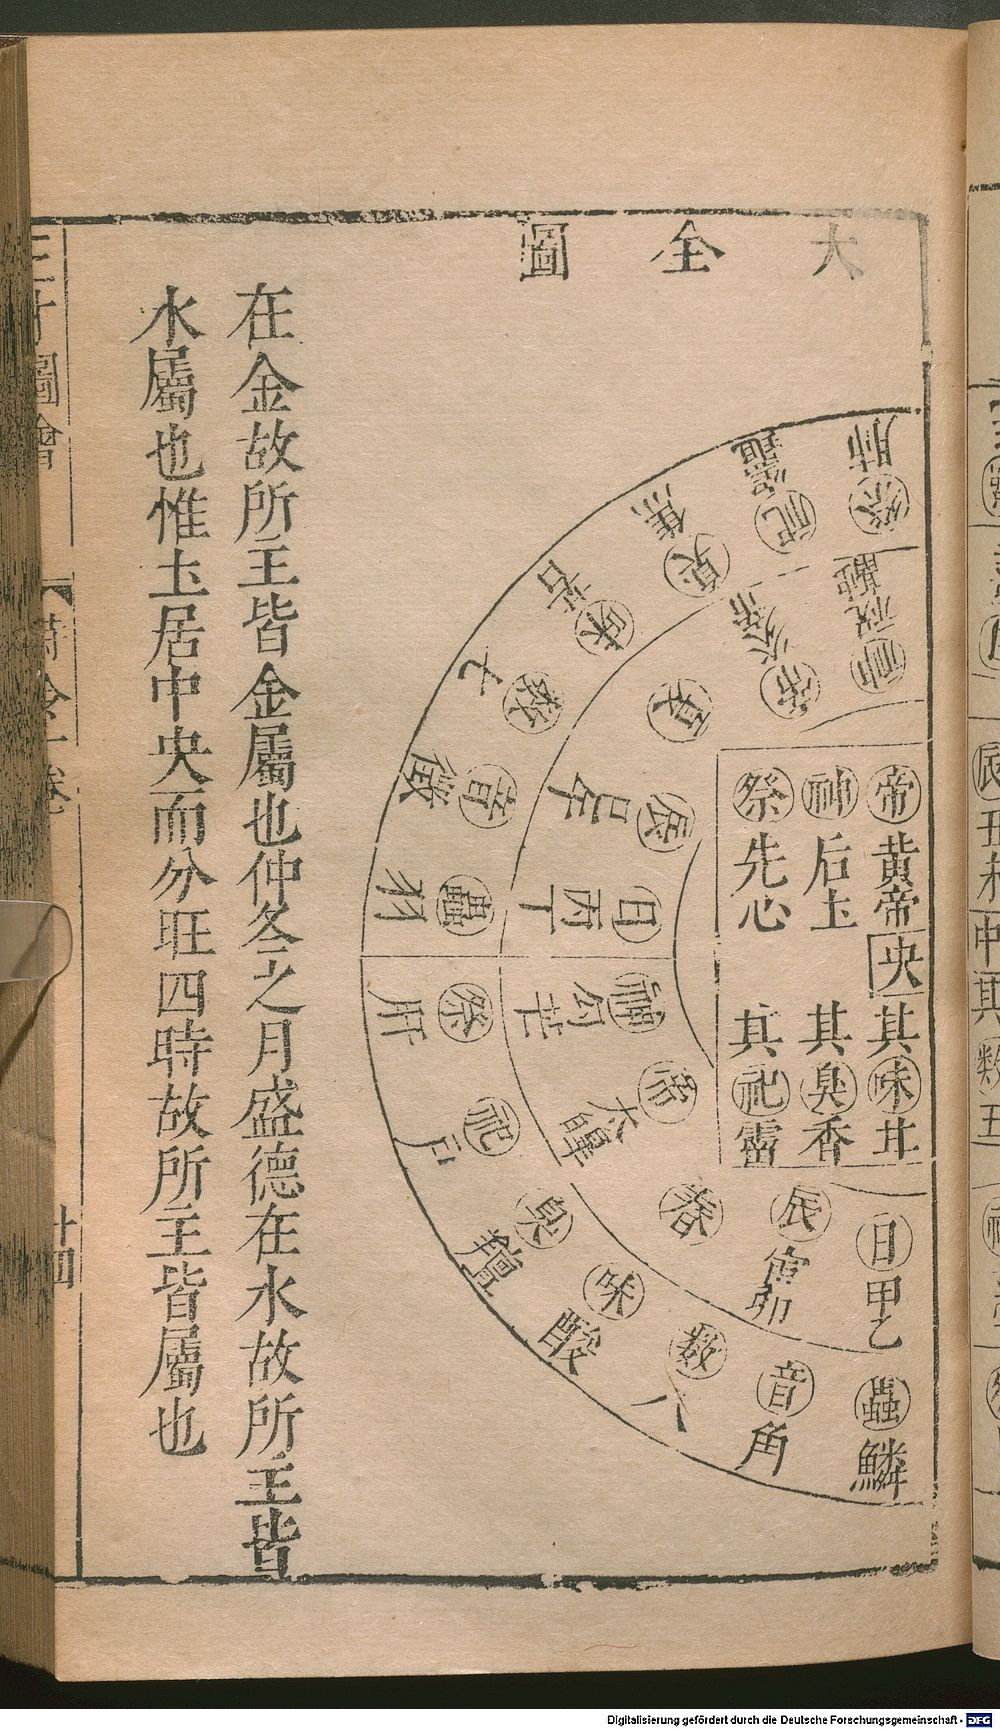 大全圖
帝黃帝 央 其味甘
神后土 其臭香
祭先心 其祀霤
祭肺
祀竈
臭焦
味苦
數七
音徵
蟲羽
神祝融
帝炎帝
夏
辰巳午
日丙丁
神勾芒
帝大皥
春
辰寅卯
日甲乙
祭肝
祀户
臭羶
味酸
數八
音角
蟲鱗
在金故所王皆金屬也仲冬之月盛德在水故所王皆
水屬也惟土居中央而分旺四時故所主皆屬也
三才圖會
十四
其
數
五
Digitalisierung gefördert durch die Deutsche Forschungsgemeinschaft - DFG